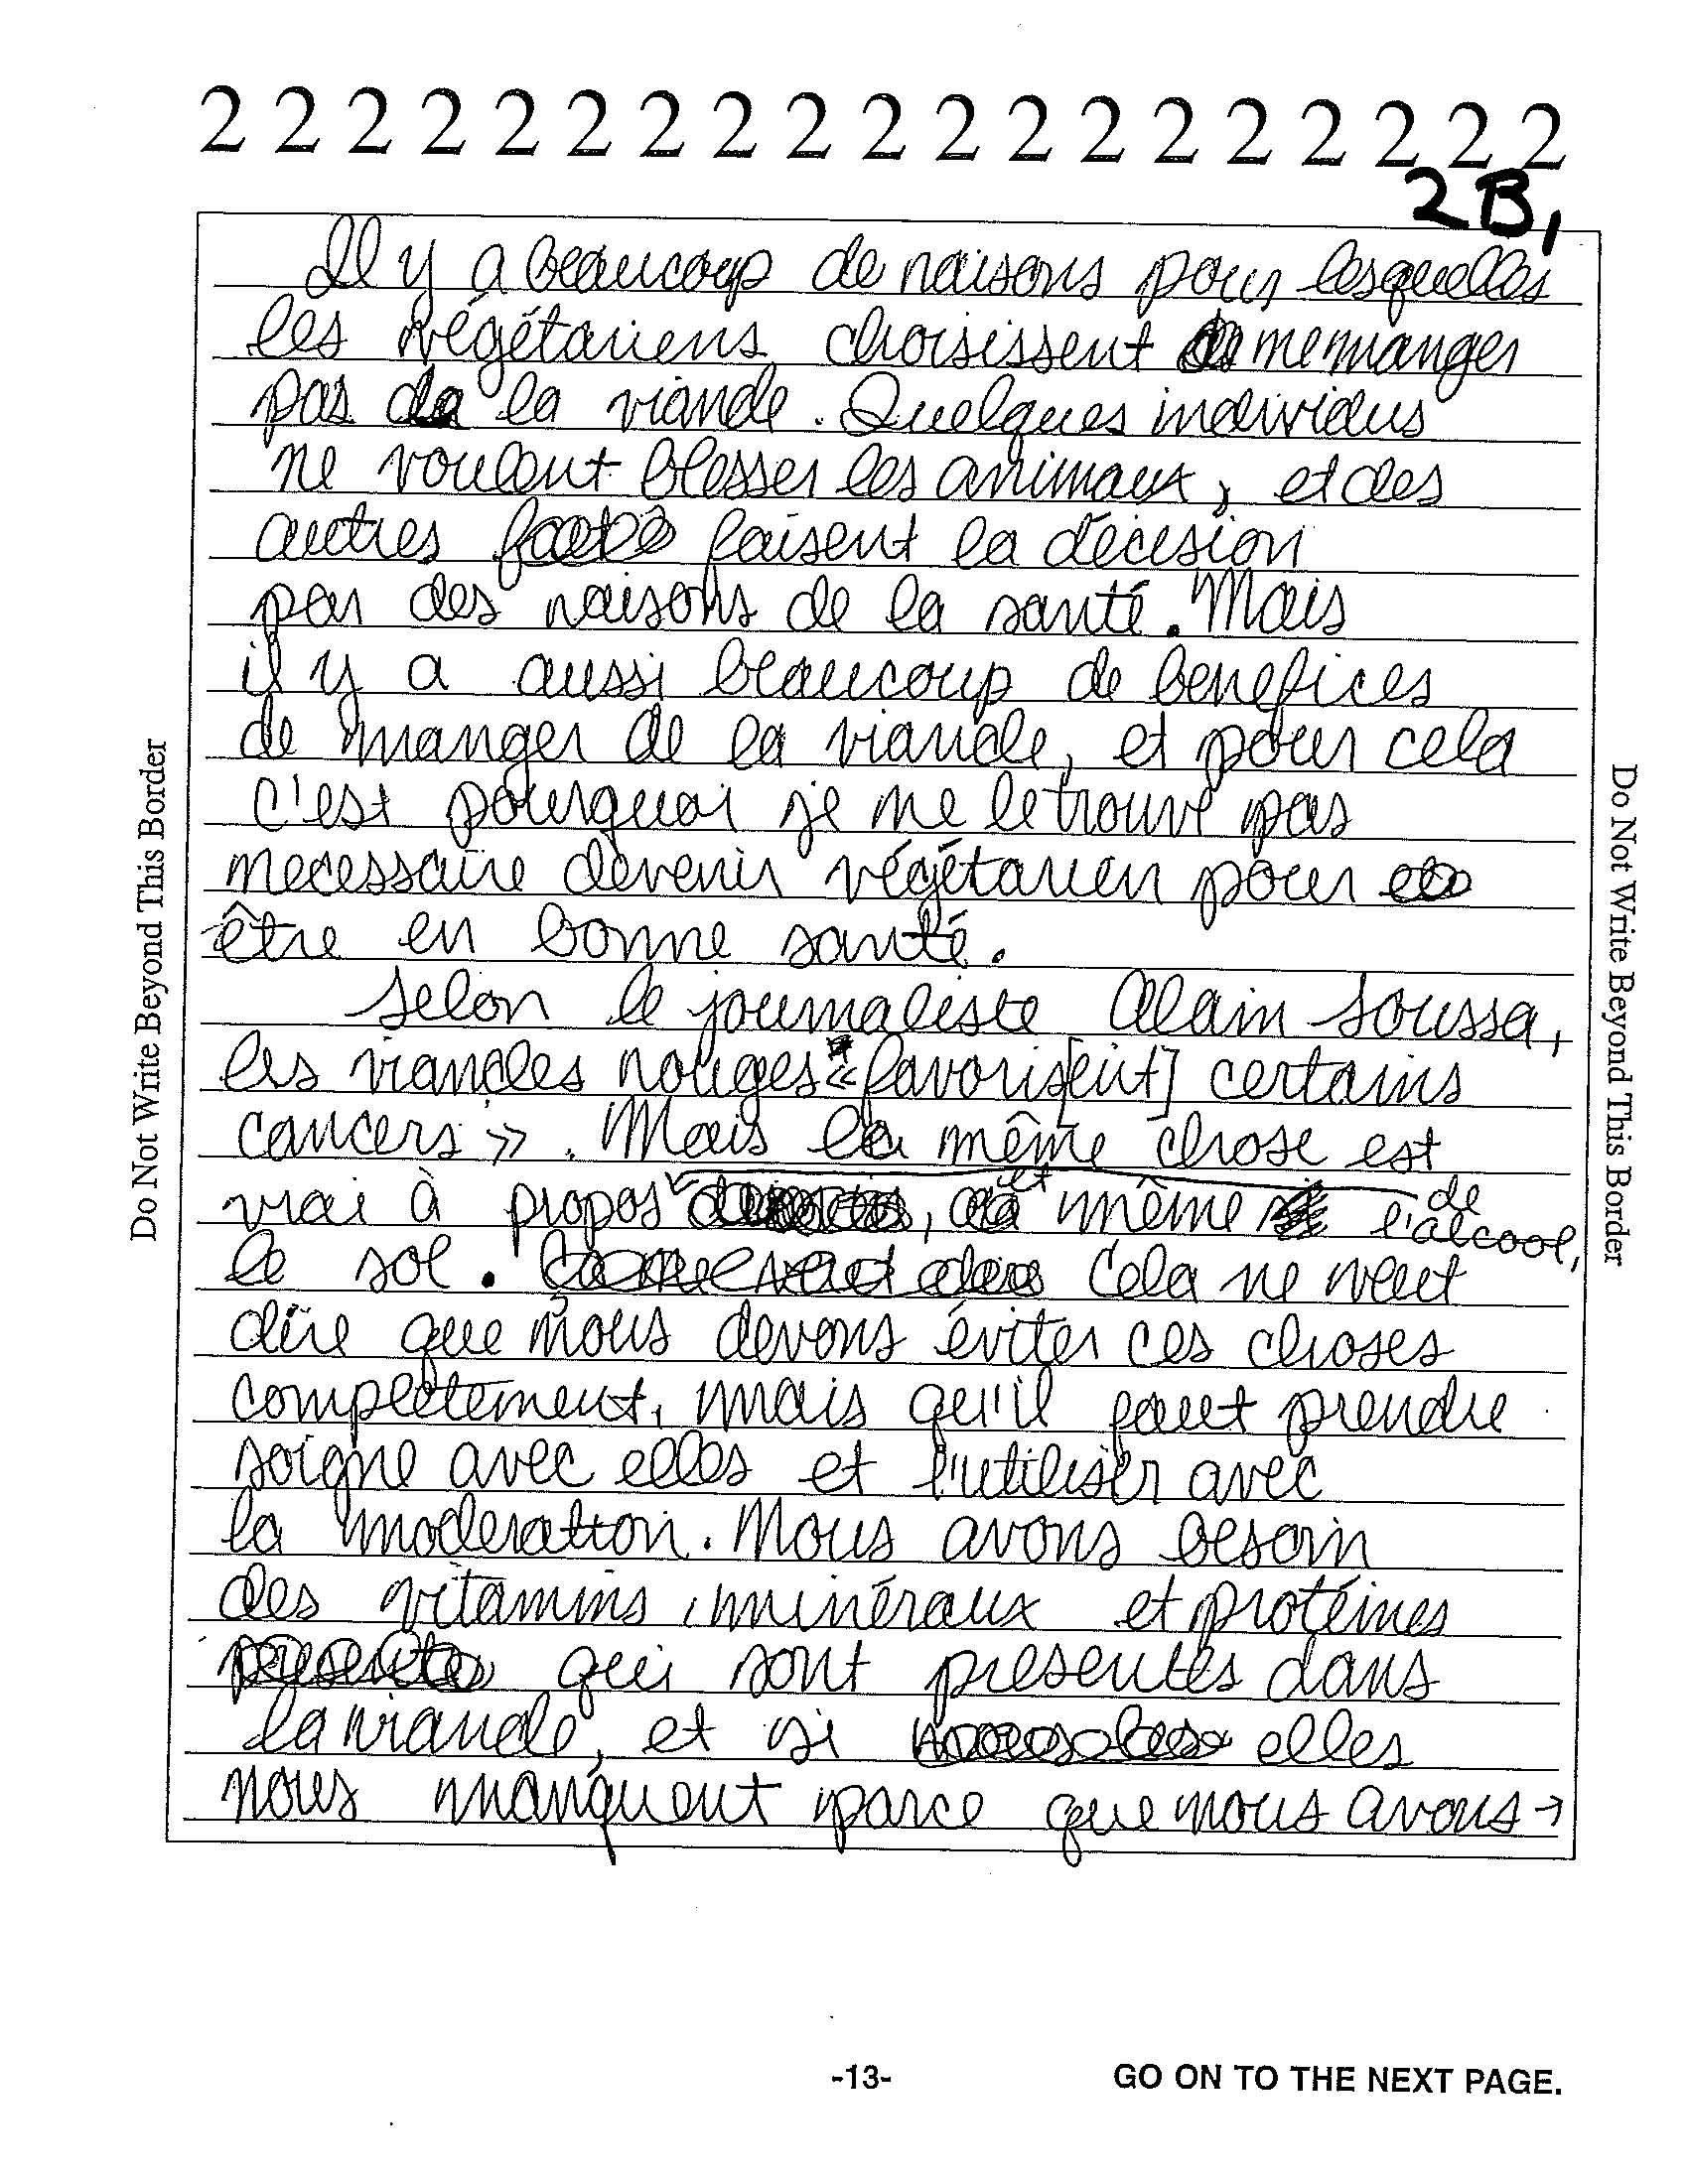 2 2 2 2 2 2 2 2 2 2 2 2 2 2 2 2 2 2 2
2B1
Il y a beaucoup de raisons pour lesquelles
les végétariens choisissent ne manger
pas de la viande. Quelques individus
ne voulent blesser les animaux, et des
autres faisent la décision
par des raisons de la santé. Mais
il y a aussi beaucoup de benefices
de manger de la viande, et pour cela
c'est pourquoi je ne le trouve pas
necessaire devenir végétarien pour
être en bonne santé.
Selon le journaliste Alain Soussa,
les viandes rouges « favoris[ent] certains
cancers ». Mais la même chose est
vrai à propos de l'alcool, et même
le sol. Cela ne veut
dire que nous devons éviter ces choses
complètement, mais qu'il faut prendre
soigne avec elles et l'utiliser avec
la moderation. Nous avons besoin
des vitamins, minéraux et protéines
qui sont presentes dans
la viande, et si elles
nous manquent parce que nous avons →
Do Not Write Beyond This Border
Do Not Write Beyond This Border
-13-
GO ON TO THE NEXT PAGE.